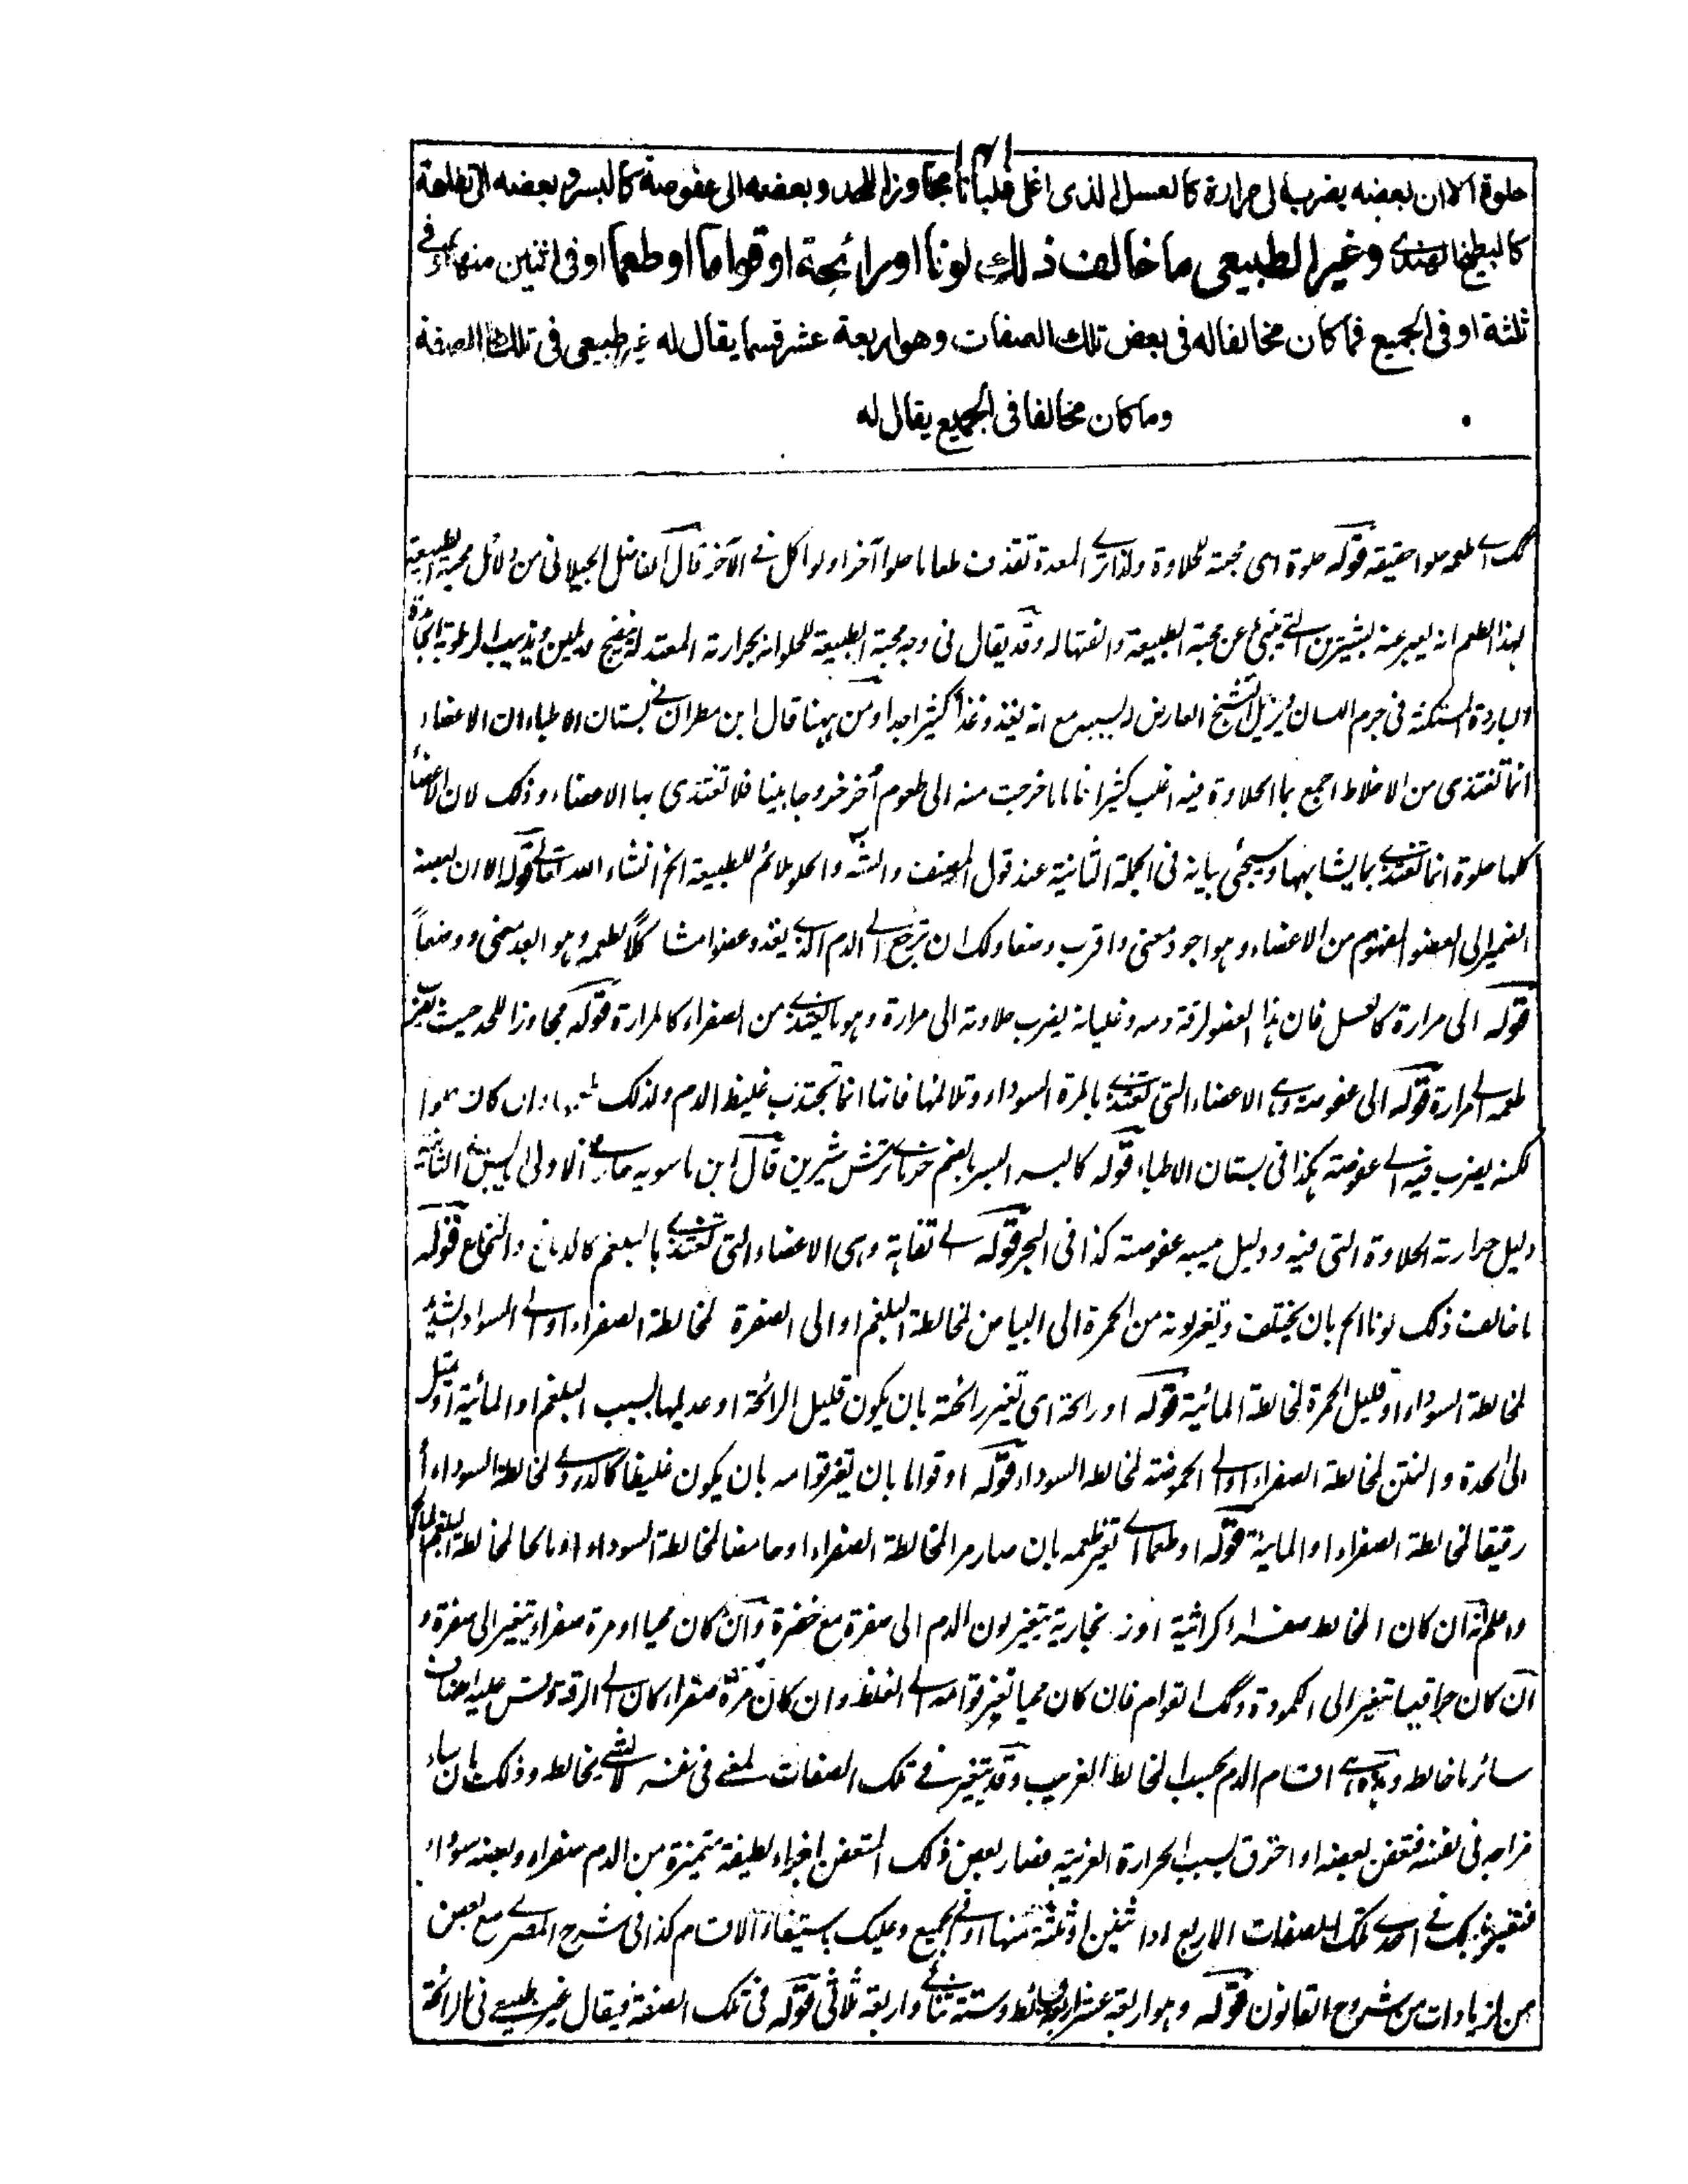 ١٤١
حلوة الا ان بعضه يضرب الى حرارة كالعسل الذى اغلى غليانا مجاوزا للحد وبعضه الى عفوصة كالبسر وبعضه الى تفاهة
كالبطيخ الهندى وغير الطبيعى ما خالف ذلك لونا او رائحة او قواما او طعما او فى اثنين منها او فى
ثلثة او فى الجميع فما كان مخالفا له فى بعض تلك الصفات وهو اربعة عشر قسما يقال له غير طبيعى فى تلك الصفة
وما كان مخالفا فى الجميع يقال له
طعمه حلوا حقيقة قوله حلوة اى محبة للحلاوة ولذا ترى المعدة تقذف طعاما حلوا آخرا ولو اكل فى الآخر قال الفاضل الجيلانى من دلائل محبة الطبيعة
لهذا الطعم انه يعبر عنه بشيرين التى تنبئ عن محبة الطبيعة والفتها له وقد يقال فى وجه محبة الطبيعة للحلو انه بحرارته المعتدلة ينضج ويلين ويذيب الرطوبة
والباردة المستكنة فى جرم اللسان ويزيل التشنج العارض بسببه مع انه يغذو غذاء كثيرا جدا ومن ههنا قال ابن مطران فى بستان الاطباء ان الاعضاء
انما تغتذى من الاخلاط اجمع بما الحلاوة فيه اغلب كثيرا فاما ما خرجت منه الى طعوم أخر خروجا بينا فلا تغتذى بها الاعضاء وذلك لان الاعضاء
كلها حلوة انما تغتذى بما يشابهها وسيجئ بيانه فى الجملة الثانية عند قول المصنف والشه والحلو ملائم للطبيعة الخ انشاء الله تعالى قوله الا ان بعضه
الضمير الى العضو المفهوم من الاعضاء وهو اجود معنى واقرب وضعا ولك ان ترجع الى الدم الذى يغذو عضوا مشاكلا لطعمه وهو ابعد معنى ووضعاً
قوله الى مرارة كالعسل فان هذا العضو لرقة دمه وغليانه يضرب حلاوته الى مرارة وهو ما يغتذى من الصفراء كالمرارة قوله مجاوزا للحد حيث يتغير
طعمه الى مرارة قوله الى عفوصة وهى الاعضاء التى تغتذى بالمرة السوداء وتلائمها فانها انما تجتذب غليظ الدم ولذلك وان كان حلوا
لكنه يضرب فيه الى عفوصة هكذا فى بستان الاطباء قوله كالبسر البسر بالضم خرماى ترش شيرين قال ابن ماسويه حار فى الاولى يابس فى الثانية
دليل حرارته الحلاوة التى فيه ودليل يبسه عفوصته كذا فى البحر قوله الى تفاهة وهى الاعضاء التى تغتذى بالبلغم كالدماغ والنخاع قوله
ما خالف ذلك لونا الخ بان يختلف ويتغير لونه من الحمرة الى البياض لمخالطة البلغم او الى الصفرة لمخالطة الصفراء او الى السواد الشديد
لمخالطة السوداء او قليل الحمرة لمخالطة المائية قوله او رائحة اى تغير رائحته بان يكون قليل الرائحة او عديمها بسبب البلغم او المائية او يميل
الى الحدة والنتن لمخالطة الصفراء او الى الحموضة لمخالطة السوداء قوله او قواما بان يتغير قوامه بان يكون غليظا كالدردى لمخالطة السوداء أو
رقيقا لمخالطة الصفراء او المائية قوله او طعما اى تغير طعمه بان صار مرا لمخالطة الصفراء او حامضا لمخالطة السوداء او مالحا لمخالطة البلغم المالح
واعلم انه ان كان المخالط صفراء كراثية او زنجارية يتغير لون الدم الى صفرة مع خضرة وان كان محيا او مرة صفراء يتغير الى صفرة و
ان كان حراقيا يتغير الى الكمودة وكذلك القوام فان كان محيا تغير قوامه الى الغلظ وان كان مرة صفراء كان الى الرقة وقس عليه اصناف
سائر ما خالط وهذه هى اقسام الدم بحسب المخالط الغريب وقد يتغير فى تلك الصفات لمعنى فى نفسه لا لشئ يخالطه وذلك بان ساء
مزاجه فى نفسه فتعفن بعضه او احترق بسبب الحرارة الغريبة فصار بعض ذلك المتعفن اجزاء لطيفة متميزة من الدم صفراء وبعضه سوداء
فتغير بذلك فى احدى تلك الصفات الاربع او اثنين او ثلثة منها او فى الجميع وعليك باستيفاء الاقسام كذا فى شرح المصرى مع بعض
من الزيادات من شروح القانون قوله وهو اربعة عشر اربعة بسائط وستة ثنائى واربعة ثلاثى قوله فى تلك الصفة فيقال غير طبيعى فى الرائحة